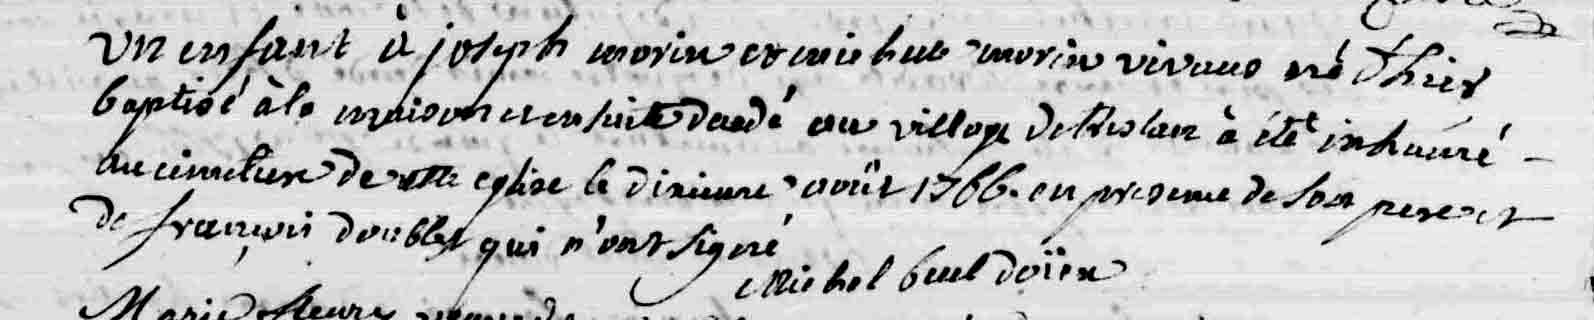 un enfant à joseph morin et michelle morin vivans né d'hier
baptisé à la maison et ensuite decedé au village de à été inhumé -
au cimetiere de cette eglise le dixieme août 1766. en presence de son pere et
de françois doublet qui n'ont signé
Michel buel doïen
Marie fleury